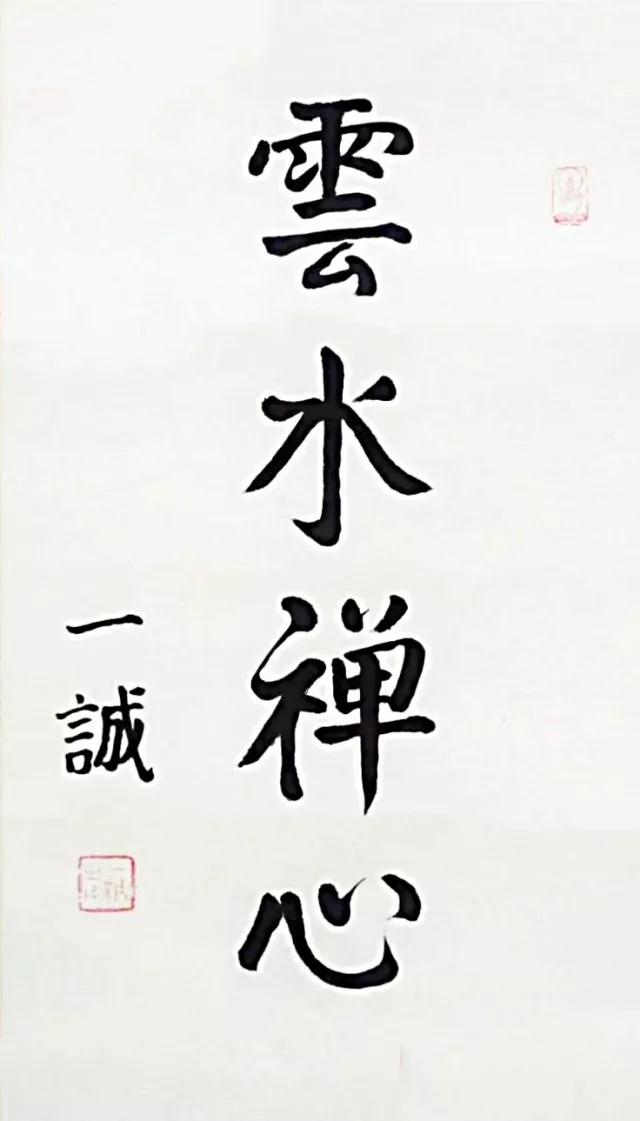 雲水禅心
一誠